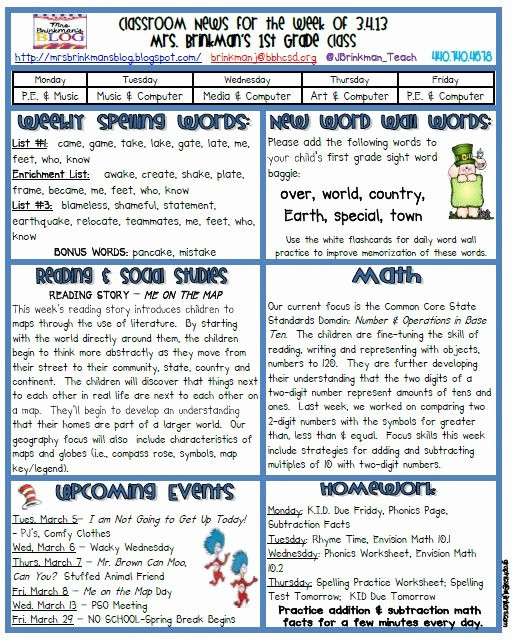 Mrs. Brinkman's BLOG
Classroom News for the week of 3.4.13
Mrs. Brinkman's 1st Grade Class
http://mrsbrinkmansblog.blogspot.com/ brinkmanj@bbhcsd.org @JBrinkman_Teach 440.740.4678
Monday Tuesday Wednesday Thursday Friday
P.E. & Music Music & Computer Media & Computer Art & Computer P.E. & Computer
Weekly Spelling Words:
List #1: came, game, take, lake, gate, late, me,
feet, who, know
Enrichment List: awake, create, shake, plate,
frame, became, me, feet, who, know
List #3: blameless, shameful, statement,
earthquake, relocate, teammates, me, feet, who,
know
BONUS WORDS: pancake, mistake
New Word Wall Words:
Please add the following words to
your child's first grade sight word
baggie:
over, world, country,
Earth, special, town
Use the white flashcards for daily word wall
practice to improve memorization of these words.
Reading & Social Studies
READING STORY – ME ON THE MAP
This week's reading story introduces children to
maps through the use of literature. By starting
with the world directly around them, the children
begin to think more abstractly as they move from
their street to their community, state, country and
continent. The children will discover that things next
to each other in real life are next to each other on
a map. They'll begin to develop an understanding
that their homes are part of a larger world. Our
geography focus will also include characteristics of
maps and globes (i.e., compass rose, symbols, map
key/legend).
Math
Our current focus is the Common Core State
Standards Domain: Number & Operations in Base
Ten. The children are fine-tuning the skill of
reading, writing and representing with objects,
numbers to 120. They are further developing
their understanding that the two digits of a
two-digit number represent amounts of tens and
ones. Last week, we worked on comparing two
2-digit numbers with the symbols for greater
than, less than & equal. Focus skills this week
include strategies for adding and subtracting
multiples of 10 with two-digit numbers.
Upcoming Events
Tues. March 5– I am Not Going to Get Up Today!
- PJ's, Comfy Clothes
Wed, March 6 – Wacky Wednesday
Thurs. March 7 – Mr. Brown Can Moo,
Can You? Stuffed Animal Friend
Fri. March 8 – Me on the Map Day
Wed. March 13 – PSO Meeting
Fri. March 29 – NO SCHOOL-Spring Break Begins
Homework:
Monday: K.I.D. Due Friday, Phonics Page,
Subtraction Facts
Tuesday: Rhyme Time, Envision Math 10.1
Wednesday: Phonics Worksheet, Envision Math
10.2
Thursday: Spelling Practice Worksheet; Spelling
Test Tomorrow; KID Due Tomorrow
Practice addition & subtraction math
facts for a few minutes every day.